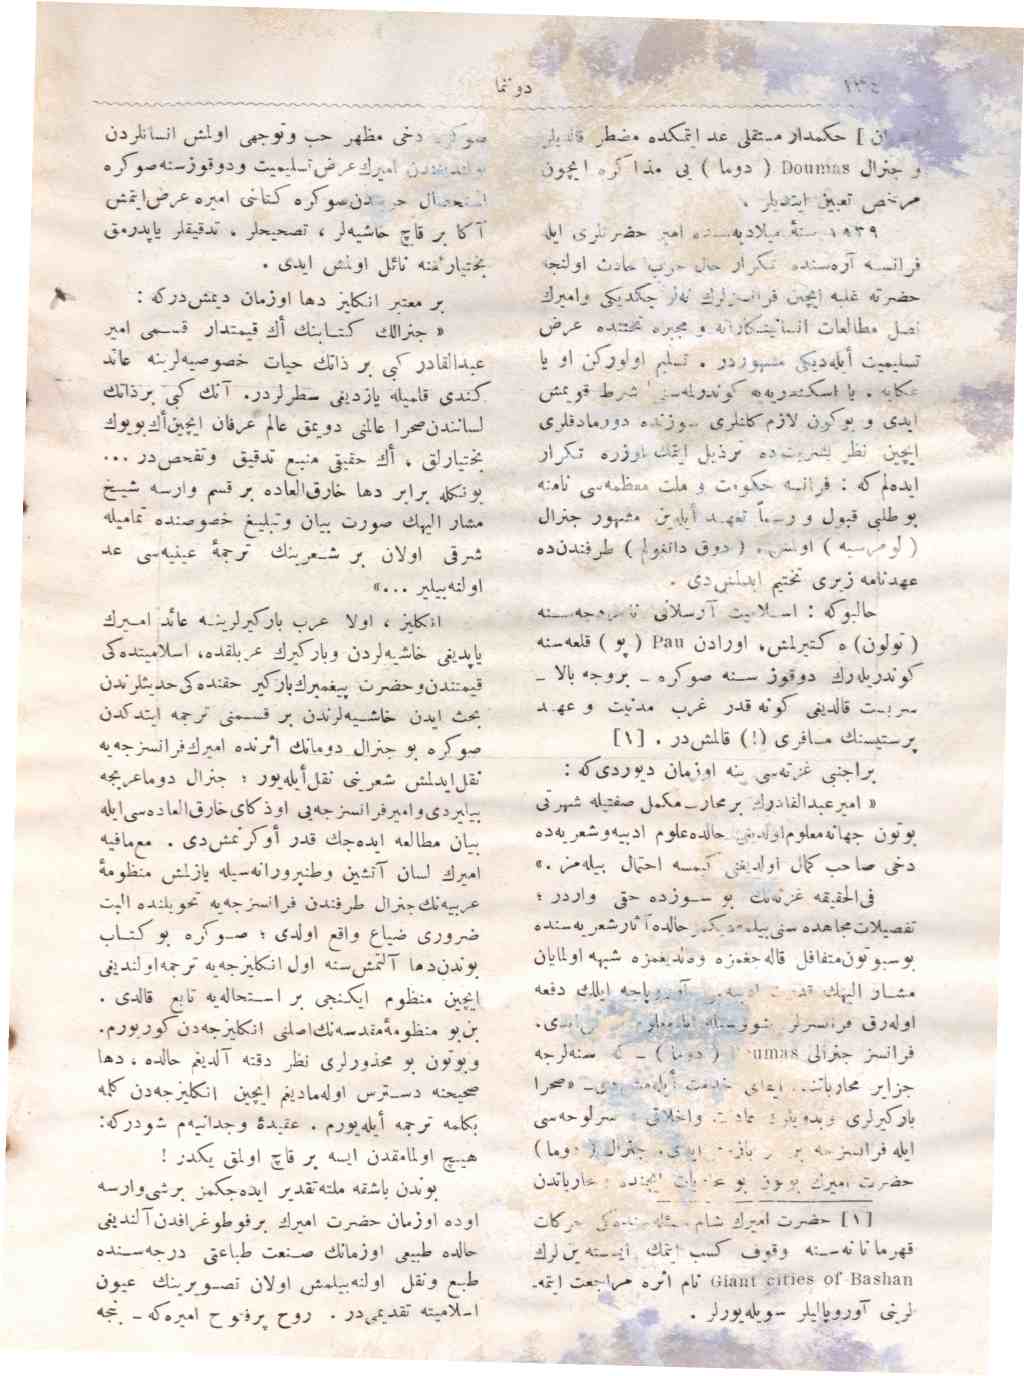 ١٣٤
دوننما
حكمدار مستقلی عد ایتمكده مضطر قالدیلر
و جنرال Doumas ( دوما ) یی مذاكره ایچون
مرخص تعیین ایتدیلر .
١٨٣٩ سنهٔ میلادیه‌سنده امیر حضرتلری ایله
فرانسه آره‌سنده تكرار حال حرب حادث اولنجه
حضرته غلبه ایچین فرانسزلرك نه‌لر چكدیكی وامیرك
مطالعات انسانیتكارانه و مجبره تحتنده عرض
تسلیمیت أیله‌دیكی مشهوردر . تسلیم اولوركن او یا
عكایه ، یا اسكندریه‌یه كوندرلمه‌سنی شرط قویمش
ایدی و بوكون لازم كلنلری سوزنده دورمادقلری
ایچین نظر بشریت‌ده ترذیل ایتمك اوزره تكرار
ایده‌لم‌كه : فرانسه حكومت و ملت معظمه‌سی نامنه
بو طلبی قبول و رسماً تعهد أیله‌ین مشهور جنرال
( لومرسیه ) اولمش ، ( دوق دانغولم ) طرفندن‌ده
عهدنامه زیری تختیم ایدلمش‌دی .
حالبوكه : اسلامیت آرسلانی
( تولون ) ه كتیرلمش، اورادن Pau ( پو ) قلعه‌سنه
كوندریله‌رك دوقوز سنه صوكره ـ بروجه بالا ـ
سربست قالدیغی كونه قدر غرب مدنیت و عهد
پرستیسنك مسافری (!) قالمش‌در . [١]
براجنبی غزته‌سی ینه اوزمان دیوردی‌كه :
« امیر عبدالقادرك بر محارب مكمل صفتیله شهرتی
بوتون جهانه معلوم اولدیغی حالده علوم ادبیه وشعریه‌ده
دخی صاحب كمال اولدیغنی كیمسه احتمال بیله‌مز .»
فی‌الحقیقه غزته‌نك بو سوزده حقی واردر ؛
تفصیلات مجاهده سنی بیلمه‌دیكمز حالده آثار شعریه‌سنده
بوسبوتون متغافل قاله‌جغمزه شبهه اولمایان
مشار الیهك آوروپاجه ایلك دفعه
اوله‌رق فرانسزلر
فرانسز جنرالی Doumas ( دوما ) ـ كه سنه‌لرجه
جزایر محارباتنده ایفای خدمت أیله‌مش‌دی ـ «صحرا
باركیرلری وبدویلرك عادات واخلاقی » سرلوحه‌سی
ایله فرانسزجه بر اثر یازمش ایدی. جنرال ( دوما )
حضرت امیرك بوتون بو محاربات ایچنده
[١] حضرت امیرك شام مسئله‌سنده‌كی حركات
قهرمانانه‌سنه وقوف كسب ایتمك ایسته‌ین‌لرك
Giant cities of Bashan نام اثره مراجعت ایتمه‌
لرینی آوروپالیلر سویله‌یورلر .
صوكره دخی مظهر حب وتوجهی اولمش انسانلردن
بولندیغندن امیرك عرض تسلیمیت ودوقوز سنه صوكره
استحصال حریتدن صوكره كتابنی امیره عرض ایتمش
آكا بر قاچ حاشیه‌لر ، تصحیحلر ، تدقیقلر یاپدرمق
بختیارلغنه نائل اولمش ایدی .
بر معتبر انكلیز دها اوزمان دیمش‌دركه :
« جنرالك كتابنك أك قیمتدار قسمی امیر
عبدالقادر كبی بر ذاتك حیات خصوصیه‌لرینه عائد
كندی قلمیله یازدیغی سطرلردر. آنك كبی بر ذاتك
لسانندن صحرا عالمنی دویمق عالم عرفان ایچین أك بویوك
بختیارلق ، أك حقیقی منبع تدقیق وتفحص‌در ...
بونكله برابر دها خارق‌العاده بر قسم وارسه شیخ
مشار الیهك صورت بیان وتبلیغ خصوصنده تمامیله
شرقی اولان بر شعرینك ترجمهٔ عینیه‌سی عد
اولنه‌بیلیر ...»
انكلیز ، اولا عرب باركیرلرینه عائد امیرك
یاپدیغی حاشیه‌لردن وباركیرك عربلقده، اسلامیتده‌كی
قیمتندن وحضرت پیغمبرك باركیر حقنده‌كی حدیثلرندن
بحث ایدن حاشیه‌لرندن بر قسمنی ترجمه ایتدكدن
صوكره بو جنرال دومانك اثرنده امیرك فرانسزجه‌یه
نقل ایدلمش شعرینی نقل أیله‌یور ؛ جنرال دوما عربجه
بیلیردی وامیر فرانسزجه‌یی او ذكای خارق‌العاده‌سی ایله
بیان مطالعه ایده‌جك قدر أوكرنمش‌دی . مع‌مافیه
امیرك لسان آتشین وطنپرورانه‌سیله یازلمش منظومهٔ
عربیه‌نك جنرال طرفندن فرانسزجه‌یه تحویلنده البت
ضروری ضیاع واقع اولدی ؛ صوكره بو كتاب
بوندن دها آلتمش سنه اول انكلیزجه‌یه ترجمه اولندیغی
ایچین منظوم ایكنجی بر استحاله‌یه تابع قالدی .
بن بو منظومهٔ مقدسه‌نك اصلنی انكلیزجه‌دن كوریورم.
وبوتون بو محذورلری نظر دقته آلدیغم حالده ، دها
صحیحنه دسترس اوله‌مادیغم ایچین انكلیزجه‌دن كلمه
بكلمه ترجمه أیله‌یورم . عقیدهٔ وجدانیه‌م شودركه:
هیچ اولمامقدن ایسه بر قاچ اولمق یكدر !
بوندن باشقه ملته تقدیر ایده‌جكمز برشی وارسه
اوده اوزمان حضرت امیرك بر فوطوغرافدن آلندیغی
حالده طبیعی اوزمانك صنعت طباعتی درجه‌سنده
طبع ونقل اولنه‌بیلمش اولان تصویرینك عیون
اسلامیته تقدیمی‌در . روح پرفتوح امیره‌كه ـ نجه